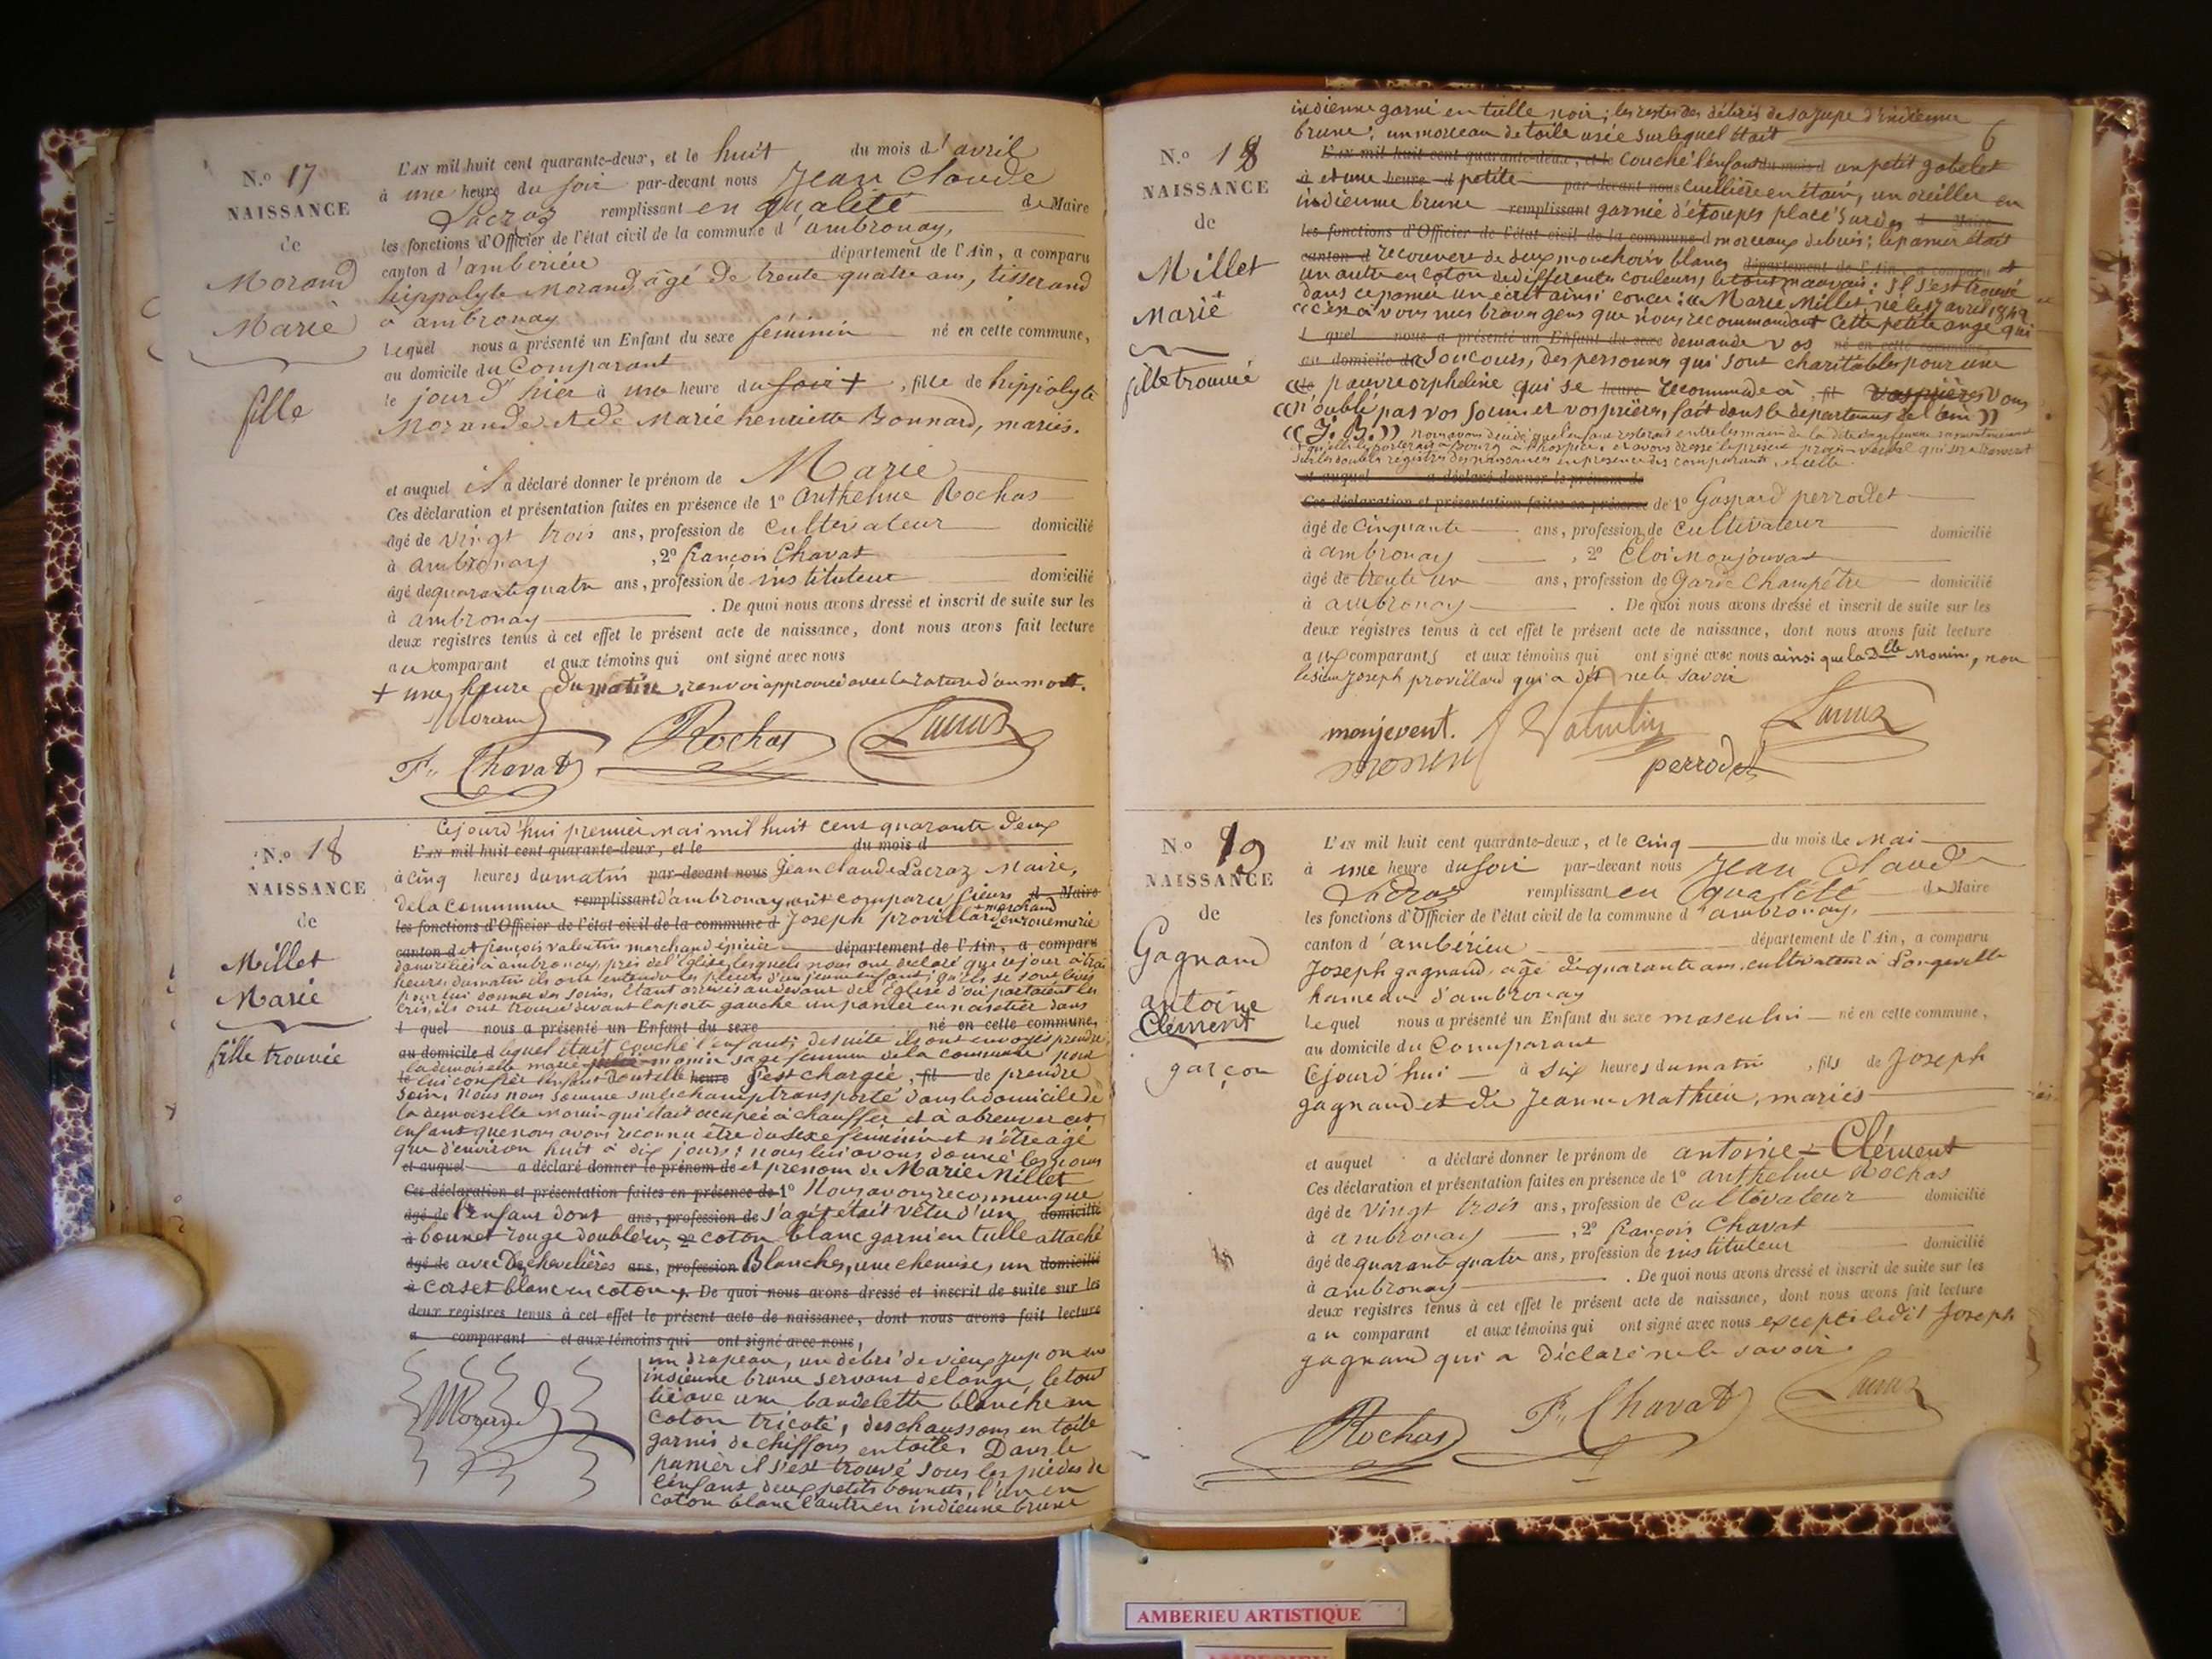 N.o 17
NAISSANCE
de
Morand
Marie
fille
L'AN mil huit cent quarante-deux, et le huit du mois d'avril
à une heure du soir par-devant nous Jean Claude
Lacroz remplissant en qualité de Maire
les fonctions d'Officier de l'état civil de la commune d'ambronay,
canton d'ambérieu département de l'Ain, a comparu
hippolyte Morand, âgé de trente quatre ans, tisserand
à ambronay
lequel nous a présenté un Enfant du sexe féminin né en cette commune,
au domicile du Comparant
le jour d'hier à une heure du soir +, fille de hippolyte
Morand et de Marie henriette Bonnard, mariés.
et auquel il a déclaré donner le prénom de Marie
Ces déclaration et présentation faites en présence de 1o anthelme Rochas
âgé de vingt trois ans, profession de cultivateur domicilié
à ambronay, 2o françois Chavat
âgé de quarante quatre ans, profession de instituteur domicilié
à ambronay. De quoi nous avons dressé et inscrit de suite sur les
deux registres tenus à cet effet le présent acte de naissance, dont nous avons fait lecture
au comparant et aux témoins qui ont signé avec nous
+ une heure du matin, renvoi approuvé avec la rature d'un mot.
Morand
F. Chavat Rochas Lacroz
N.o 18
NAISSANCE
de
Millet
Marie
fille trouvée
Cejourd'hui premier mai mil huit cent quarante deux
L'AN mil huit cent quarante-deux, et le du mois d
à cinq heures du matin par-devant nous Jean Claude Lacroz Maire,
de la commune remplissant d'ambronay, ont comparu sieurs d Maire
+ marchand
les fonctions d'Officier de l'état civil de la commune d Joseph provillard en rouennerie
canton d et françois valentin marchand épicier département de l'Ain, a comparu
domiciliés à ambronay, près de l'église, lesquels nous ont déclaré que ce jour à trois
heures du matin ils ont entendu les pleurs d'un jeune enfant; qu'ils se sont levés
pour lui donner des soins, étant arrivés au devant de l'église d'où partaient les
cris, ils ont trouvé devant la porte gauche un panier en noisetier dans
l quel nous a présenté un Enfant du sexe né en cette commune,
au domicile d lequel était couché l'enfant; de suite ils ont envoyé prendre
la demoiselle marie monin sage femme de la commune pour
le lui confier l'enfant dont elle heure s'est chargée, fil de prendre
soin. Nous nous sommes sur le champ transporté dans le domicile de
la demoiselle Monin qui était occupée à chauffer et à abreuver cet
enfant que nous avons reconnu être du sexe féminin et n'être âgé
que d'environ huit à dix jours; nous lui avons donné les noms
et auquel a déclaré donner le prénom de et prénom de Marie Millet
Ces déclaration et présentation faites en présence de 1o Nous avons reconnu que
âgé de l'enfant dont ans, profession de s'agit était vêtu d'un domicilié
à bonnet rouge doublé en 2o coton blanc garni en tulle attaché
âgé de avec des chevelières ans, profession Blanches, une chemise, un domicilié
à corset blanc en coton. De quoi nous avons dressé et inscrit de suite sur les
deux registres tenus à cet effet le présent acte de naissance, dont nous avons fait lecture
a comparant et aux témoins qui ont signé avec nous,
un drapeau, un débri de vieux jupon en
indienne brune servant de lange, le tout
lié avec une bandelette blanche en
coton tricoté, des chaussons en toile
garnis de chiffons en toile. Dans le
panier il s'est trouvé sous les pieds de
l'enfant deux petits bonnets, l'un en
coton blanc l'autre en indienne brune
Morand
6
N.o 18
NAISSANCE
de
Millet
Marie
fille trouvée
indienne garni en tulle noir; les restes des débris de sa jupe d'indienne
brune; un morceau de toile usée sur lequel était
L'AN mil huit cent quarante-deux, et le couché l'enfant du mois d un petit gobelet
à et une heure d petite par-devant nous cuillière en étain, un oreiller en
indienne brune remplissant garnie d'étoupes placé sur des d Maire
les fonctions d'Officier de l'état civil de la commune d morceaux de buis; le panier était
canton d recouvert de deux mouchoirs blancs département de l'Ain, a comparu et
un autre en coton de différentes couleurs, le tout mauvais; il s'est trouvé
dans ce panier un écrit ainsi conçu: « Marie Millet né le 17 avril 1842
« c'est à vous mes braves gens que nous recommandons cette petite ange qui
l quel nous a présenté un Enfant du sexe demande vos né en cette commune,
au domicile d soucours, des personnes qui sont charitables pour une
« pauvre orpheline qui se heure recommande à, fil vos prières vous
« n'oublé pas vos soins et vos prières, fait dans le département de l'ain »
« J. B. » Nous avons décidé que l'enfant resterait entre les mains de la dite sage femme momentanément
qu'elle le porterait à Bourg à l'hospice, et avons dressé le présent procès verbal qui sera transcrit
sur les doubles registres des naissances en présence des comparants, et celle
et auquel a déclaré donner le prénom de
Ces déclaration et présentation faites en présence de 1o Gaspard perrodet
âgé de Cinquante ans, profession de cultivateur domicilié
à ambronay, 2o Eloi Monjouvent
âgé de trente un ans, profession de Garde Champêtre domicilié
à ambronay. De quoi nous avons dressé et inscrit de suite sur les
deux registres tenus à cet effet le présent acte de naissance, dont nous avons fait lecture
aux comparants et aux témoins qui ont signé avec nous ainsi que la Dlle Monin, non
le sieur Joseph provillard qui a dit ne le savoir
monjevent. Valentin Lacroz
monin perrodet
N.o 19
NAISSANCE
de
Gagnand
antoine
Clément
garçon
L'AN mil huit cent quarante-deux, et le cinq du mois de Mai
à une heure du soir par-devant nous Jean Claude
Lacroz remplissant en qualité de Maire
les fonctions d'Officier de l'état civil de la commune d'ambronay,
canton d'ambérieu département de l'Ain, a comparu
Joseph gagnand, âgé de quarante ans, cultivateur à Longeville
hameau d'ambronay
lequel nous a présenté un Enfant du sexe masculin né en cette commune,
au domicile du Comparant
Cejourd'hui à six heures du matin, fils de Joseph
gagnand et de Jeanne Mathieu, mariés
et auquel a déclaré donner le prénom de antoine = Clément
Ces déclaration et présentation faites en présence de 1o anthelme Rochas
âgé de vingt trois ans, profession de cultivateur domicilié
à ambronay, 2o françois Chavat
âgé de quarante quatre ans, profession de instituteur domicilié
à ambronay. De quoi nous avons dressé et inscrit de suite sur les
deux registres tenus à cet effet le présent acte de naissance, dont nous avons fait lecture
au comparant et aux témoins qui ont signé avec nous excepté ledit Joseph
gagnand qui a déclaré ne le savoir.
Rochas F. Chavat Lacroz
AMBERIEU ARTISTIQUE
AMBERIEU